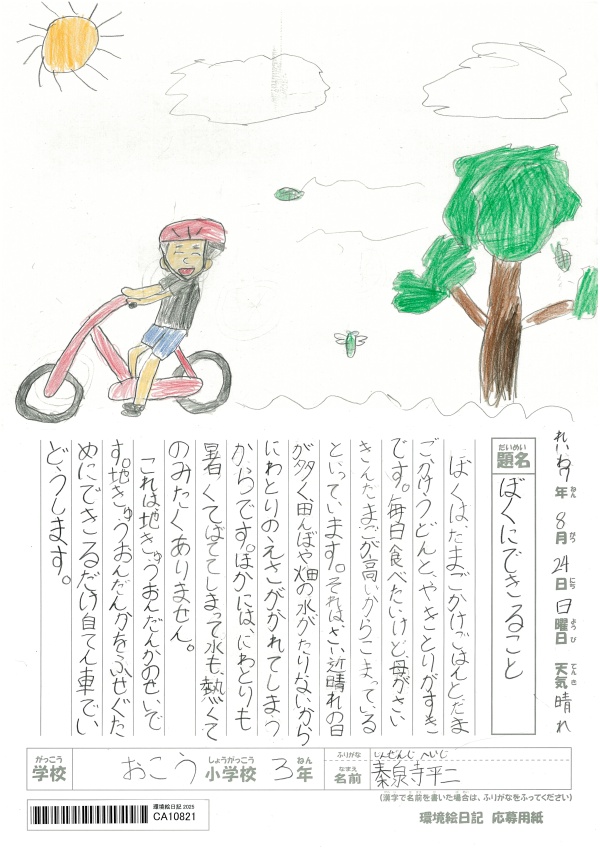 れいわ7年ねん 8月がつ 24日にち 日曜日ようび 天気てんき 晴れ
題名だいめい ぼくにできること
ぼくは、たまごかけごはんと、たま
ごかけうどんと、やきとりがすき
です。毎日食べたいけど、母がさい
きんたまごが高いからこまっている
といっています。それは、さい近晴れの日
が多く、田んぼや畑の水がたりないから
にわとりのえさがかれてしまう
からです。ほかには、にわとりも
暑くてばててしまって水も、熱くて
のみたくありません。
これは、地きゅうおんだんかのせいで
す。地きゅうおんだんかをふせぐた
めにできるだけ自てん車でい
どうします。
学校がっこう おこう 小学校しょうがっこう 3年ねん
ふりがな しんぜんじ へいじ
名前なまえ 秦泉寺平二
(漢字で名前を書いた場合は、ふりがなをふってください)
環境絵日記 2025
CA10821
環境絵日記 応募用紙